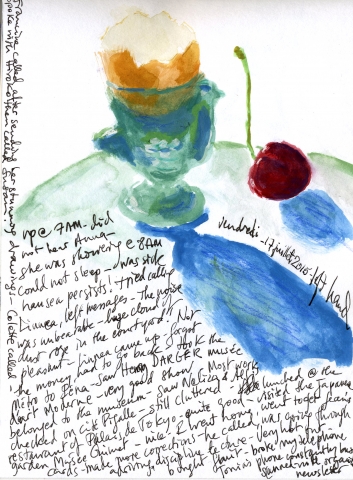 Francine called after sending her stunning drawings - Celeste called -
spoke with Hiroko then called Susan
vendredi - 17 juillet 2015 - left hand
up @ 7AM - did
not hear Anna -
she was showering @ 8AM
could not sleep - was sick
nausea persists! tried calling
Linnea, left messages - The noise
was unbearable - huge cloud of
dust rose in the courtyard! Not
pleasant - Linnea came up - forgot
the money had to go back - took the
Metro to Iéna - saw Henry DARGER musée
d'art Moderne - very good show. Most work
belonged to the museum - saw
checked on Cité Pigalle - still cluttered - lunched @ the
restaurant of Palais de Tokyo - quite good - visited the Japanese
garden Musée Guimet - nice! I went home - went to get jeans
cards - made more corrections - he called was going through
a divorce - very hot out
bought - broke my telephone
phone constantly busy
scanned - organic
newsletter